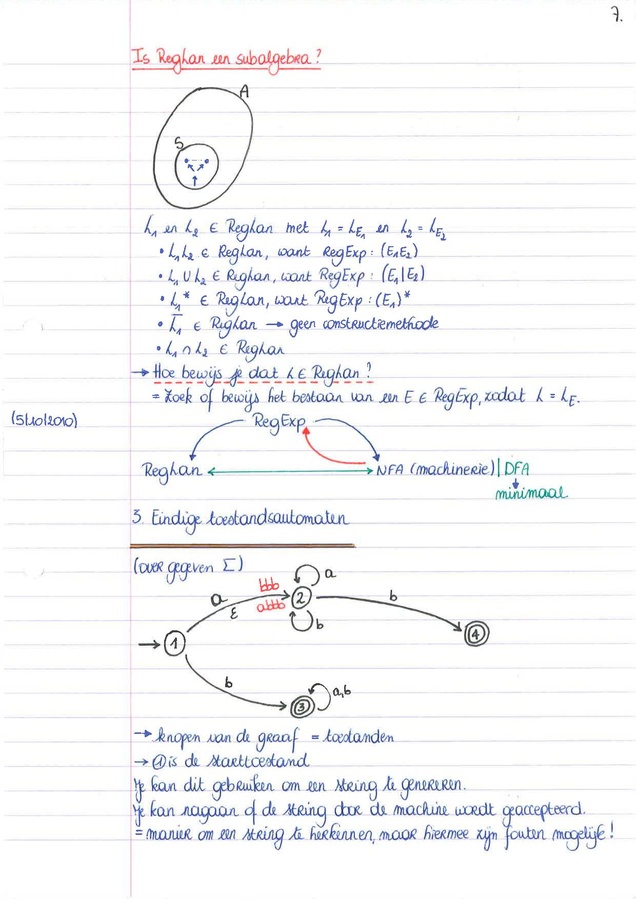 7.
Is RegLan een subalgebra?
A
S
L₁ en L₂ ∈ RegLan met L₁ = L_E₁ en L₂ = L_E₂
• L₁L₂ ∈ RegLan, want RegExp: (E₁E₂)
• L₁ ∪ L₂ ∈ RegLan, want RegExp: (E₁|E₂)
• L₁* ∈ RegLan, want RegExp: (E₁)*
• L̅₁ ∈ RegLan → geen constructiemethode
• L₁ ∩ L₂ ∈ RegLan
→ Hoe bewijs je dat L ∈ RegLan?
= Zoek of bewijs het bestaan van een E ∈ RegExp, zodat L = L_E.
(5/10/2010)
RegExp
RegLan ↔ NFA (machinerie) | DFA
minimaal
3. Eindige toestandsautomaten
(over gegeven Σ)
a
bbb
a
ε
abbb
2
b
b
1
4
b
3
a,b
→ knopen van de graaf = toestanden
→ 1 is de starttoestand
Je kan dit gebruiken om een string te genereren.
Je kan nagaan of de string door de machine wordt geaccepteerd.
= manier om een string te herkennen, maar hiermee zijn fouten mogelijk!